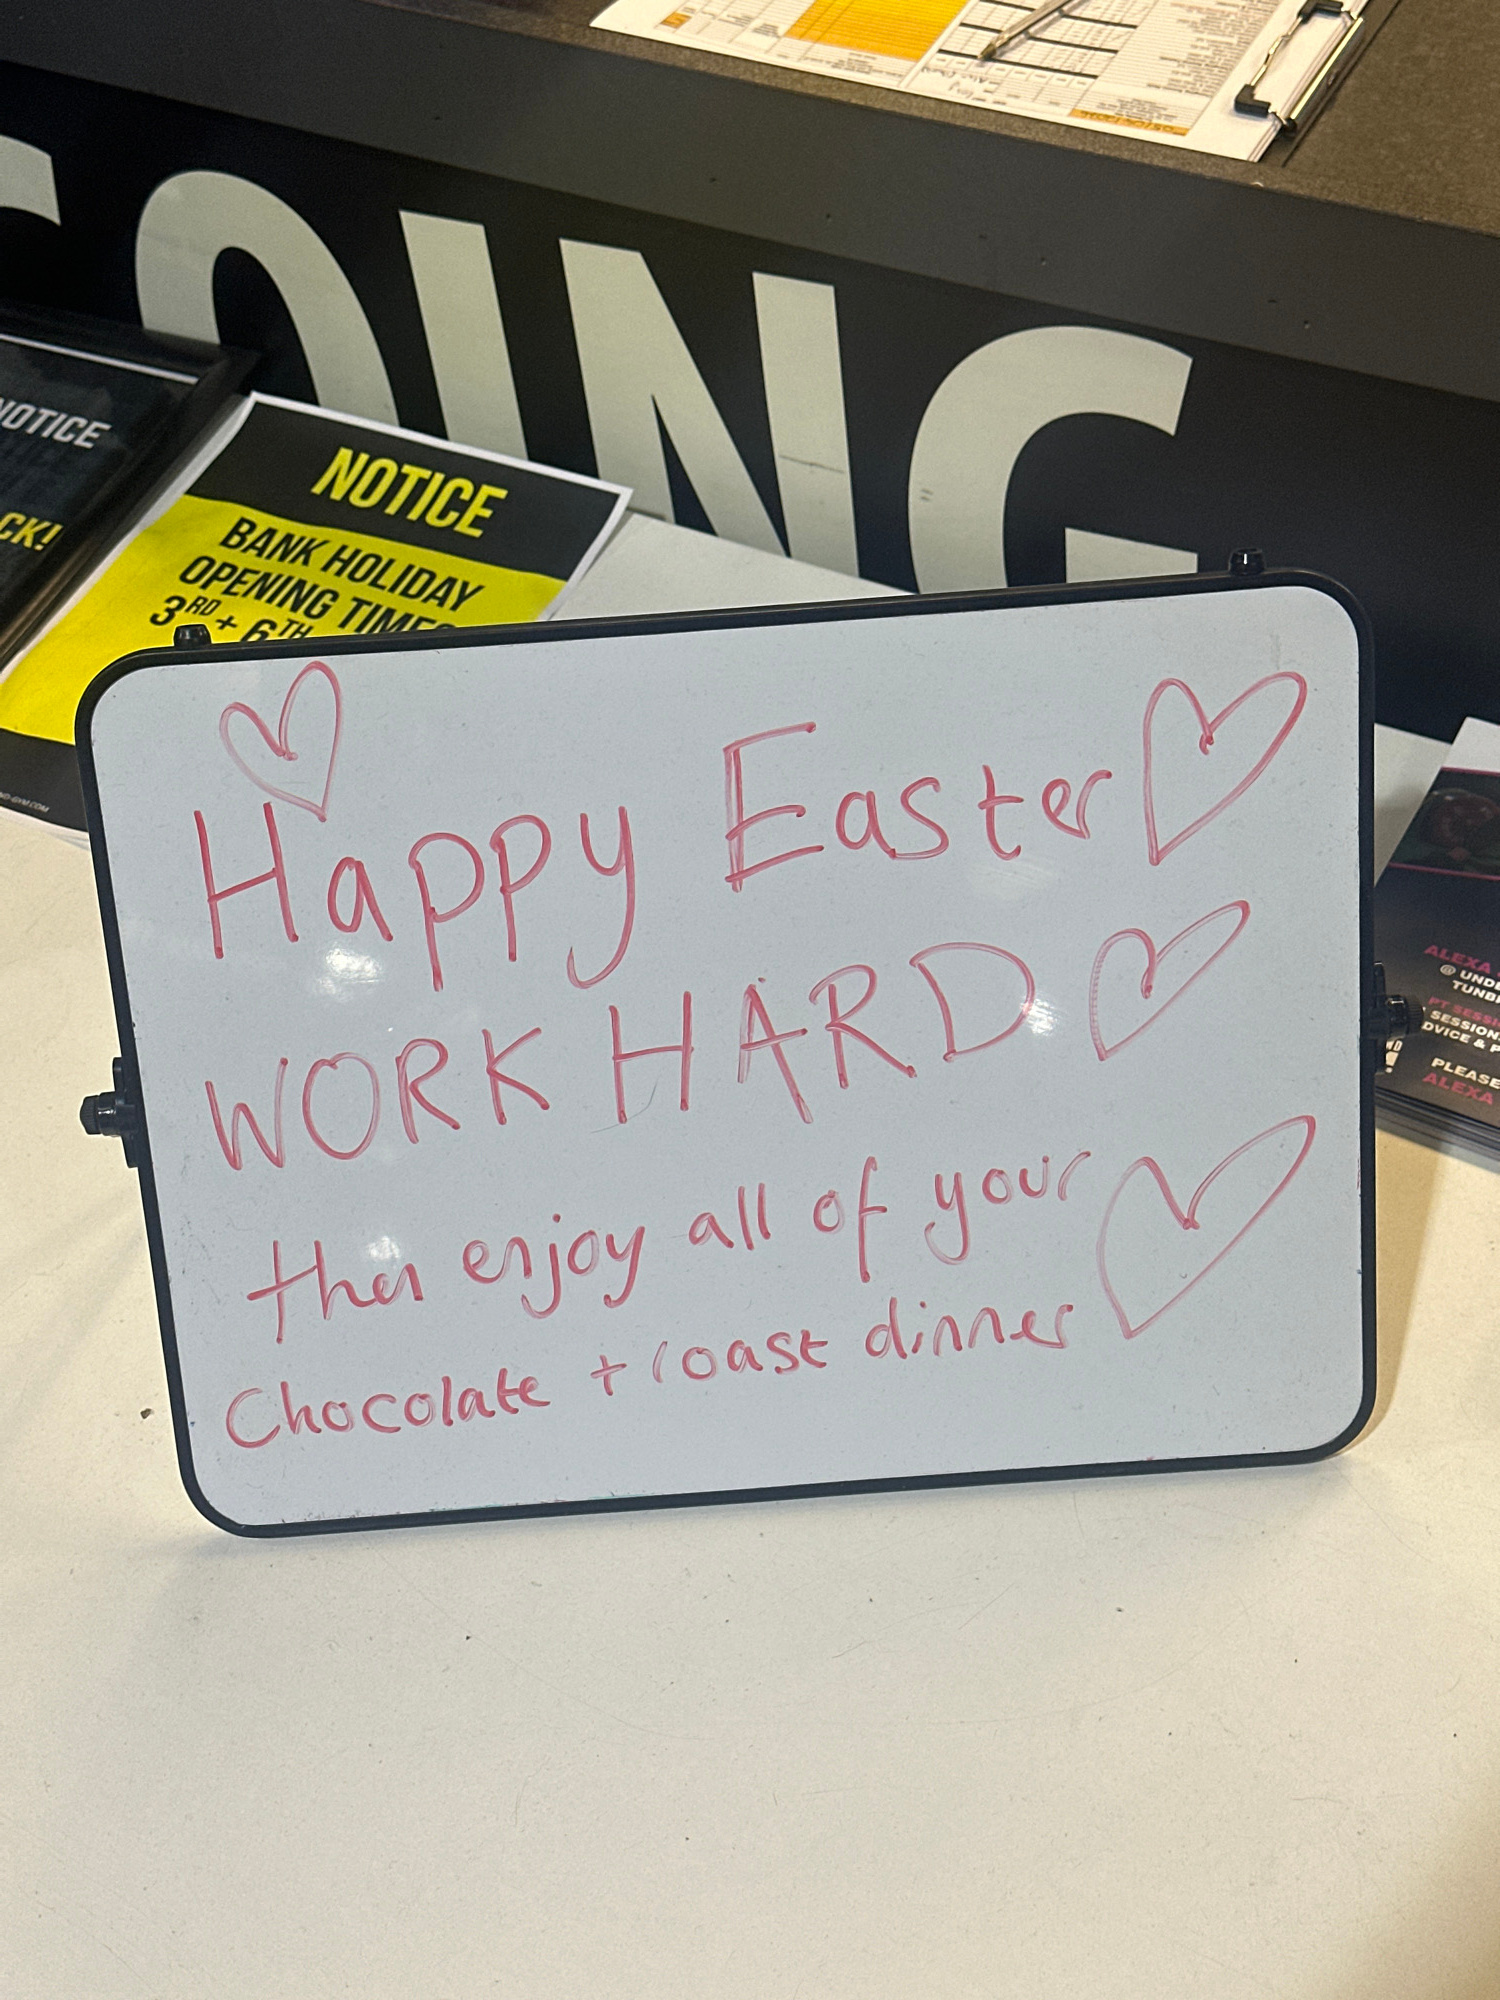 OING
NOTICE
CK!
NOTICE
BANK HOLIDAY
OPENING TIMES
3RD + 6TH
Happy Easter
WORK HARD
then enjoy all of your
Chocolate + roast dinner
ALEXA
@ UNDE
TUNB
PT SESSI
SESSION
DVICE & P
PLEASE
ALEXA